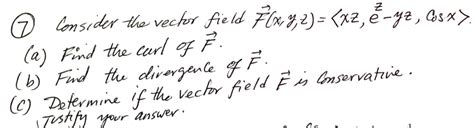 ⑦ Consider the vector field F⃗(x,y,z) = <xz, e^z - yz, cosx>.
(a) Find the curl of F⃗.
(b) Find the divergence of F⃗.
(c) Determine if the vector field F⃗ is conservative.
Justify your answer.